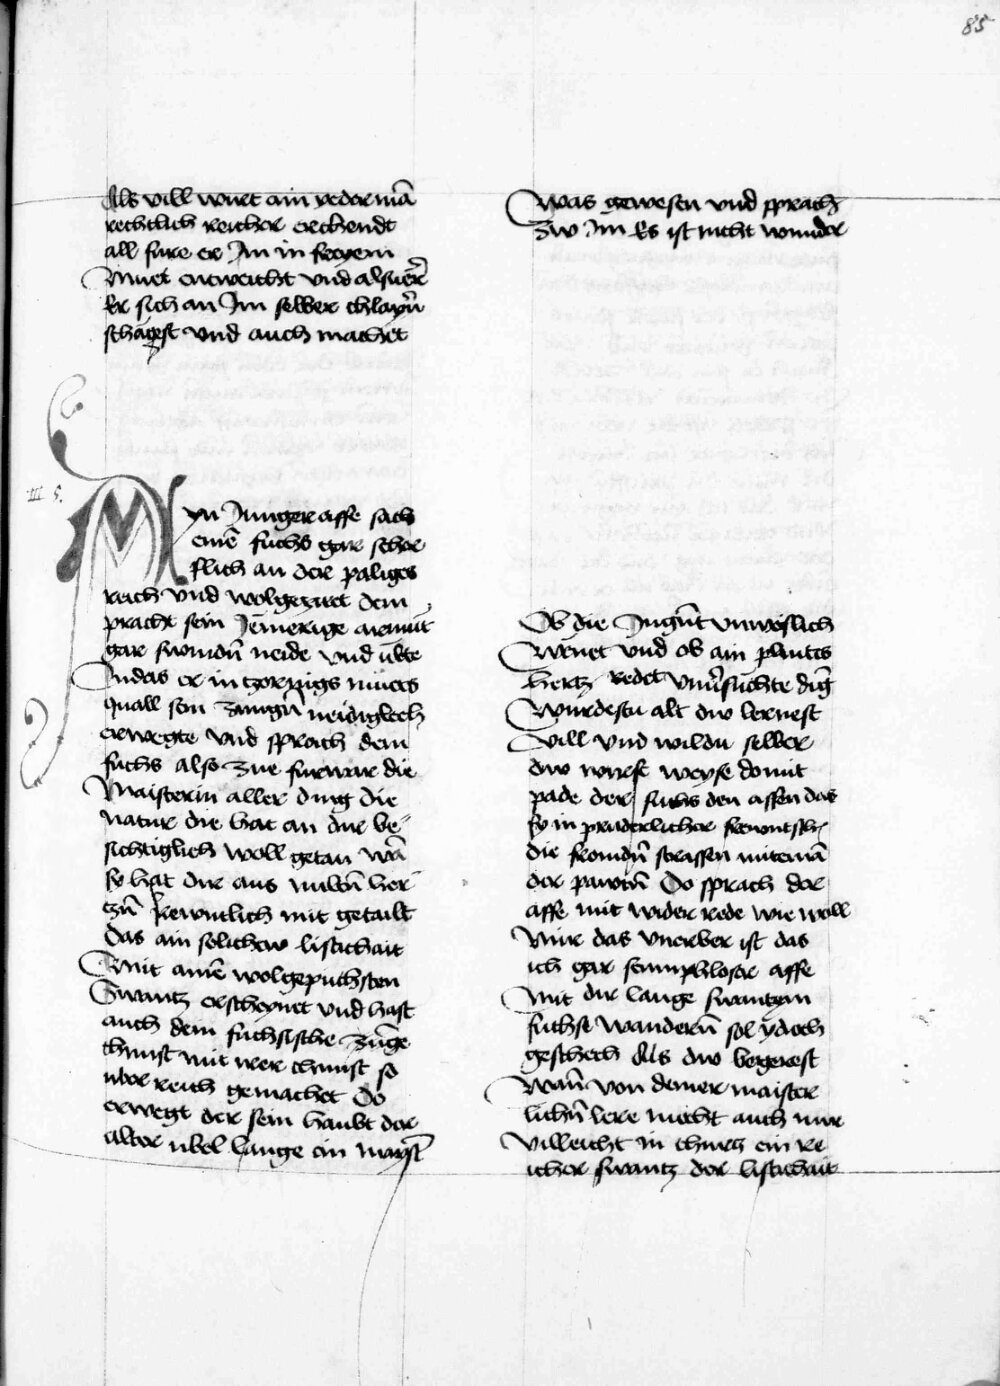 85
Als vill wurt ain yedermā
rechtlich reicher erchendt
all fure er Im in freyem
Muet entweicht vnd alsuer̄
Er sich an Im selber chlayn̄
schäczt vnd auch machet
III 5.
Myn Junger affe sach
einē fuchs gar scher
flich an der paliges
reich vnd wolgeziret dem
pracht sein Jemerige armut
gar fromdn̄ neide vnd ubte
Indas er in tzornigs muets
quall sein zungn̄ neidigleich
erwegte vnd sprach dem
fuchs also zue furwar die
Maisterin aller ding die
natur die hat an dir be-
sichtiglich woll getan wā
sy hat dir aus miltn̄ her-
tzn̄ frewntlich mit getailt
das ain solichew listichait
Mit ainē wolgepuchsten
Swantz erscheynet vnd hast
auch dein fuchsische zunge
chunst mit irer chunst so
uber reich gemachet Do
erwegt der sein haubt der
alter ubel lange ein mayst̄
Was gewesen vnd sprach
zw Im Es ist nicht wunder
Ob die Jugn̄t vnweslich
Wenet vnd ob ain plintes
hertz redet vnu̔suchte diḡ
Wurdestu alt dw lernest
vill vnd wildu selber
dw wirst weyse domit
pade der fuchs den affen das
sy in pruderlicher frewntsch-
die fromdn̄ strassen mitenā
der pawtn̄ Do sprach der
affe mit wider rede wie woll
Mir das vnerber ist das
ich gar schimphloser affe
Mit dir lange swantzem
fuchse wandern̄ sol ydoch
geschech Als dw begerest
Wan̄ von deiner maister
lichn̄ lere mecht auch mir
villeicht in churcz ein re
icher swantz der listichait